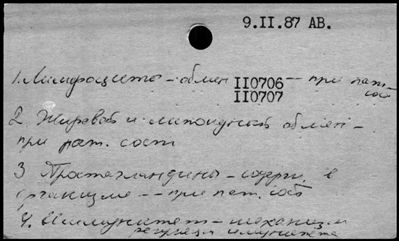 9.II.87 АВ.
1. Лимфоциты - обмен II0706 -- при пат.
II0707 сост
2 Жировой и липоидный обмен -
при пат. сост
3 Простагландины - содерж. в
организме -- при пат. сост
4. Иммунитет - механизм
регуляции иммунитета